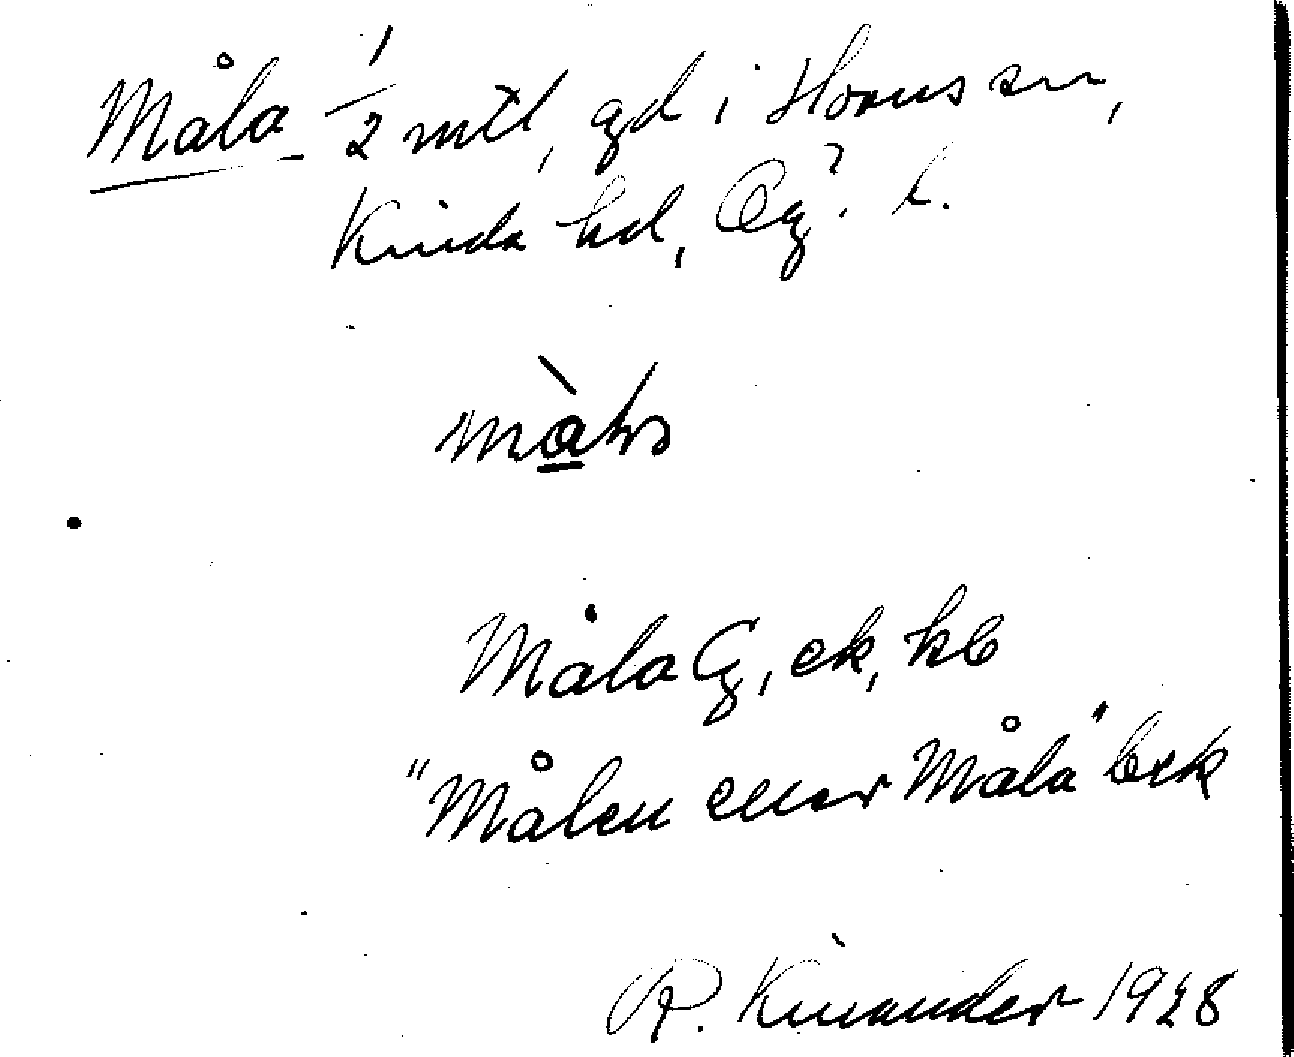 Måla 1/2 mtl, gd i Horns sn,
Kinda hd, Ög. l.
Måla G, ek, kb
"Målen eller Måla" bek
R. Kinander 1928